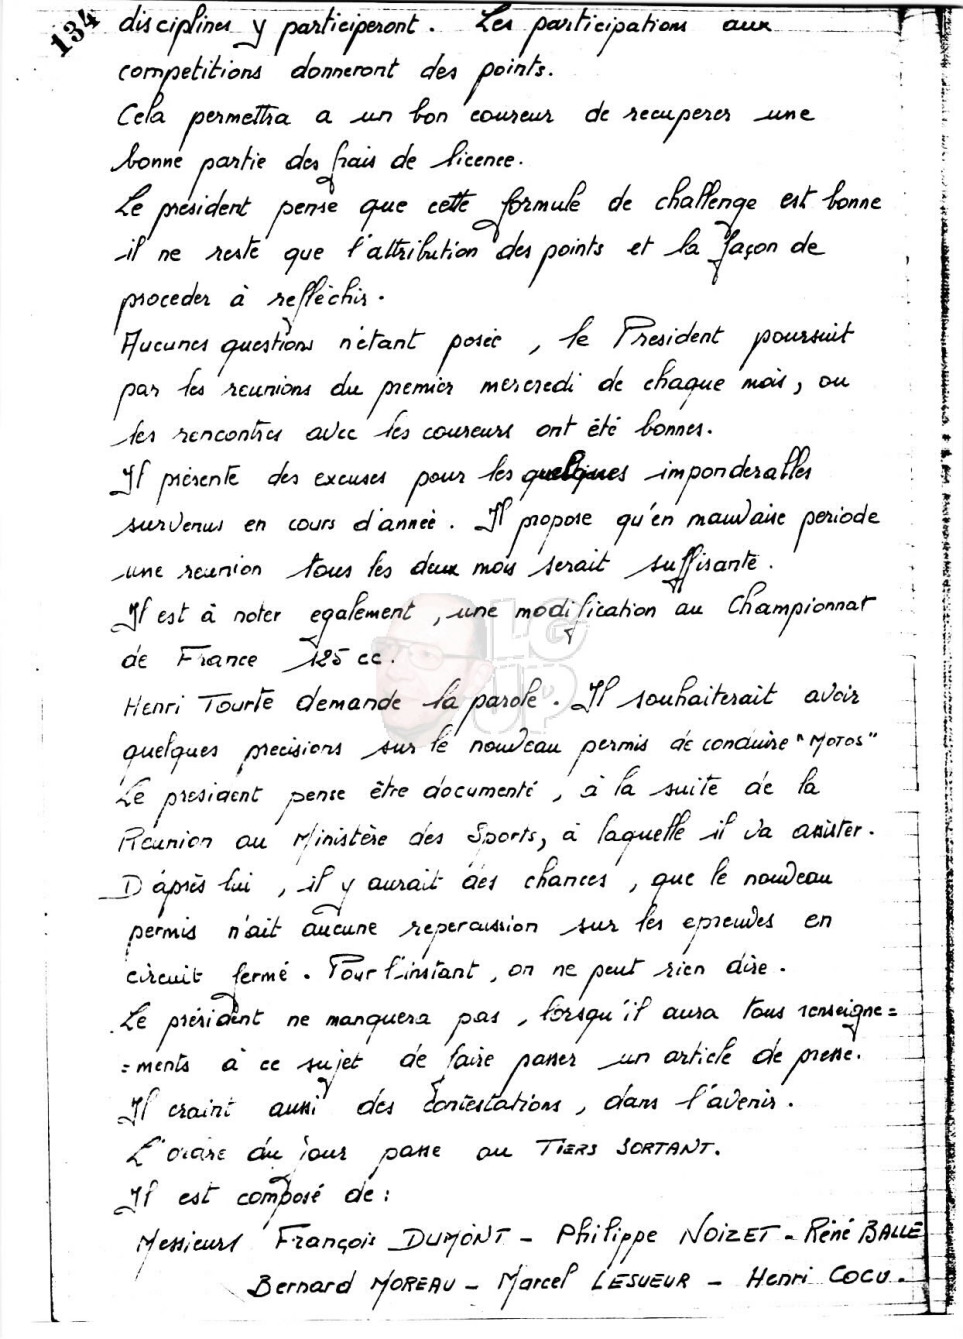 134
disciplines y participeront. Les participations aux
competitions donneront des points.
Cela permettra a un bon coureur de recuperer une
bonne partie des frais de licence.
Le president pense que cette formule de challenge est bonne
il ne reste que l'attribution des points et la façon de
proceder à reflèchir.
Aucunes questions n'étant posée, le President poursuit
par les reunions du premier mercredi de chaque mois, ou
les rencontres avec les coureurs ont été bonnes.
Il présente des excuses pour les quelques imponderables
survenus en cours d'année. Il propose qu'en mauvaise periode
une reunion tous les deux mois serait suffisante.
Il est à noter egalement, une modification au Championnat
de France 125 cc.
Henri Tourte demande la parole. Il souhaiterait avoir
quelques precisions sur le nouveau permis de conduire "MOTOS"
Le president pense être documenté, à la suite de la
Réunion au Ministère des Sports, à laquelle il va assister.
D'après lui, il y aurait des chances, que le nouveau
permis n'ait aucune repercussion sur les epreuves en
circuit fermé. Pour l'instant, on ne peut rien dire.
Le président ne manquera pas, lorsqu'il aura tous renseigne=
=ments à ce sujet de faire passer un article de presse.
Il craint aussi des contestations, dans l'avenir.
L'ordre du jour passe au TIERS SORTANT.
Il est composé de:
Messieurs François DUMONT - Philippe NOIZET - René BALLE
Bernard MOREAU - Marcel LESUEUR - Henri COCU.
LG
UP